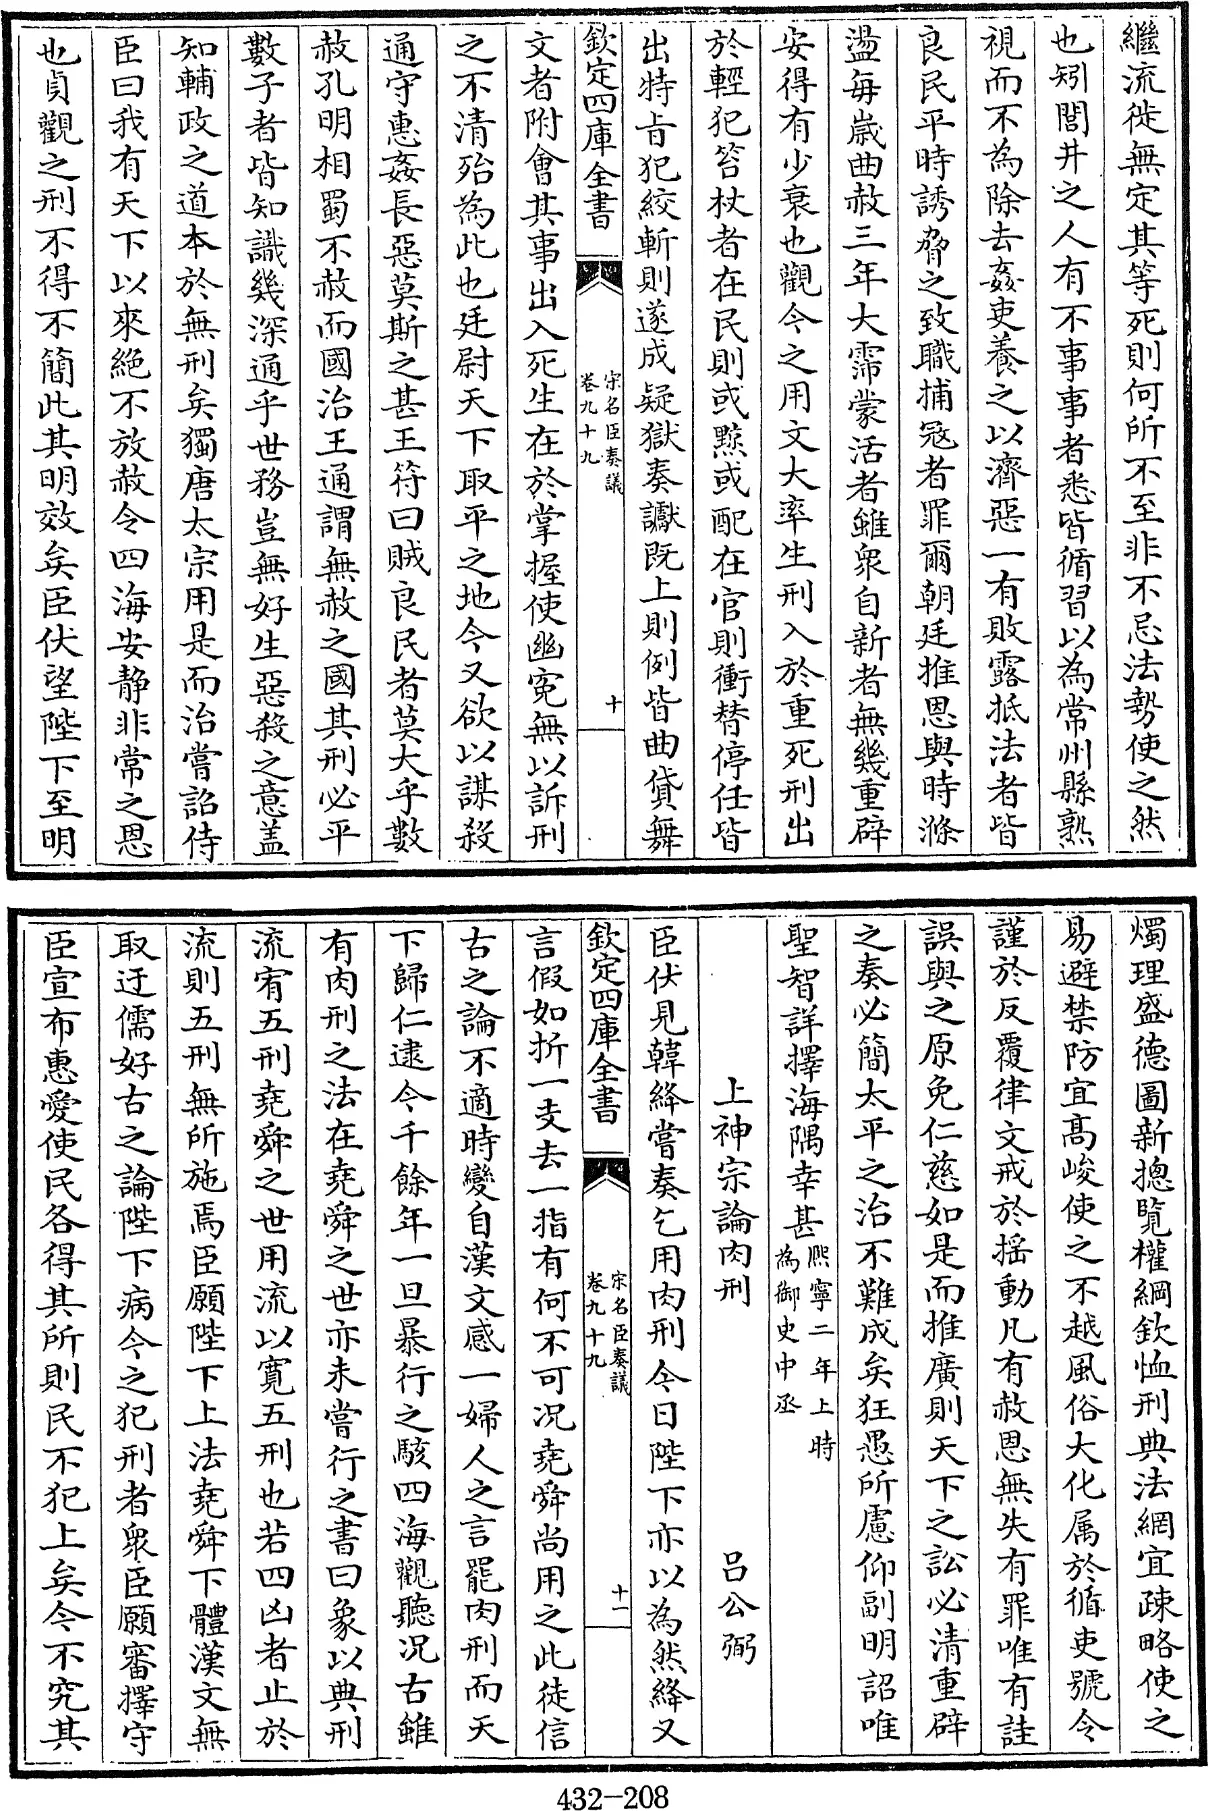 繼流徙無定其等死則何所不至非不忌法勢使之然
也矧閭井之人有不事事者悉皆循習以為常州縣熟
視而不為除去姦吏養之以濟惡一有敗露抵法者皆
良民平時誘脅之致職捕冦者罪爾朝廷推恩與時滌
盪每嵗曲赦三年大霈蒙活者雖衆自新者無幾重辟
安得有少衰也觀今之用文大率生刑入於重死刑出
於輕犯笞杖者在民則或黥或配在官則衝替停任皆
出特㫖犯絞斬則遂成疑獄奏讞既上則例皆曲貸舞
欽定四庫全書
宋名臣奏議
卷九十九
十
文者附會其事出入死生在於掌握使幽寃無以訴刑
之不清殆為此也廷尉天下取平之地今又欲以謀殺
通守惠姦長惡莫斯之甚王符曰賊良民者莫大乎數
赦孔明相蜀不赦而國治王通謂無赦之國其刑必平
數子者皆知識幾深通乎世務豈無好生惡殺之意盖
知輔政之道本於無刑矣獨唐太宗用是而治嘗詔侍
臣曰我有天下以來絶不放赦令四海安静非常之恩
也貞觀之刑不得不簡此其明效矣臣伏望陛下至明
燭理盛德圖新摠覽權綱欽恤刑典法網宜疎略使之
易避禁防宜髙峻使之不越風俗大化属於循吏號令
謹於反覆律文戒於揺動凡有赦恩無失有罪唯有詿
誤與之原免仁慈如是而推廣則天下之訟必清重辟
之奏必簡太平之治不難成矣狂愚所慮仰副明詔唯
聖智詳擇海隅幸甚熙寧二年上時
為御史中丞
上神宗論肉刑
吕公弼
臣伏見韓絳嘗奏乞用肉刑今日陛下亦以為然絳又
欽定四庫全書
宋名臣奏議
卷九十九
十一
言假如折一支去一指有何不可况堯舜尚用之此徒信
古之論不適時變自漢文感一婦人之言罷肉刑而天
下歸仁逮今千餘年一旦暴行之駭四海觀聽况古雖
有肉刑之法在堯舜之世亦未嘗行之書曰象以典刑
流宥五刑堯舜之世用流以寛五刑也若四凶者止於
流則五刑無所施焉臣願陛下上法堯舜下體漢文無
取迂儒好古之論陛下病今之犯刑者衆臣願審擇守
臣宣布惠愛使民各得其所則民不犯上矣今不究其
432-208